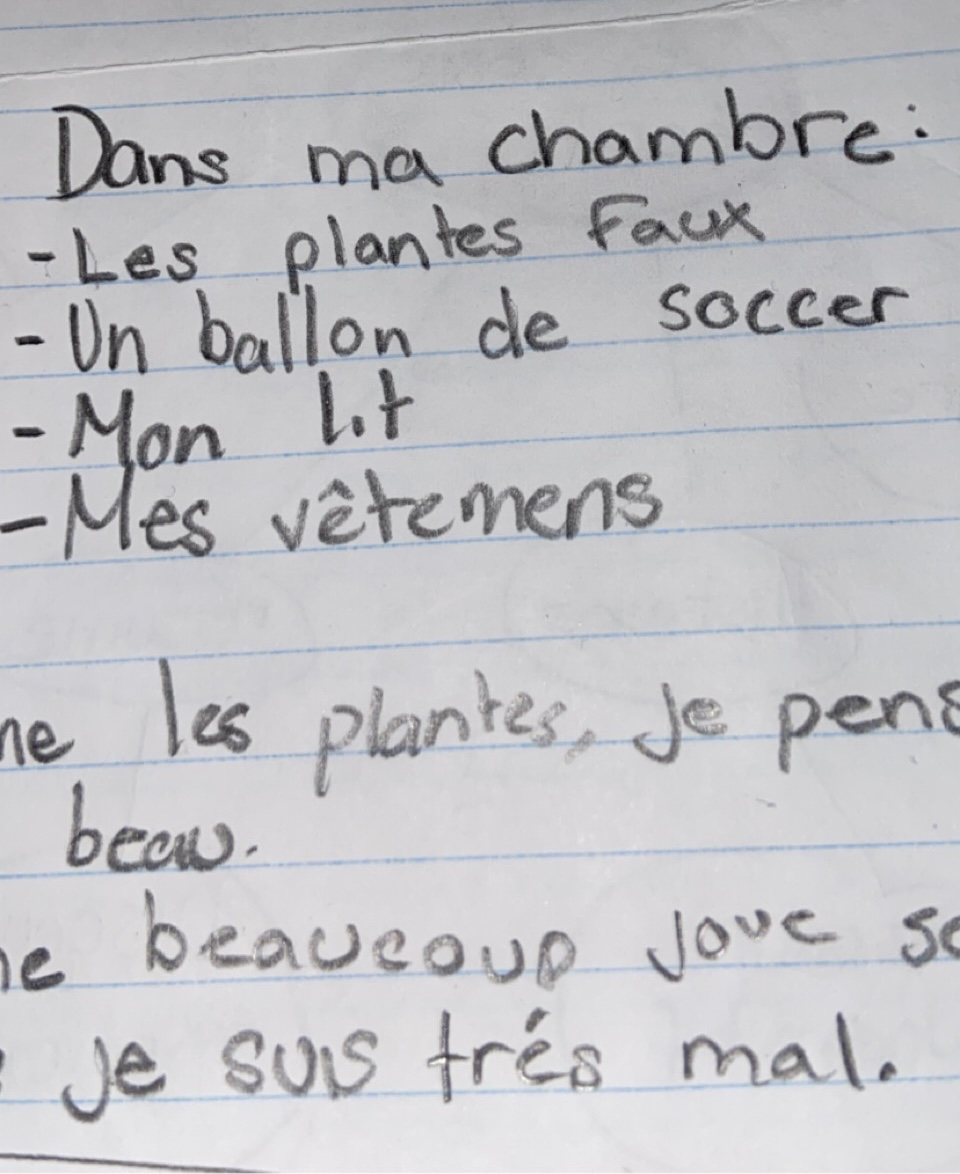 Dans ma chambre:
- Les plantes faux
- Un ballon de soccer
- Mon lit
- Mes vêtemens
les plantes, je
beau.
beaucoup joue
je suis trés mal.